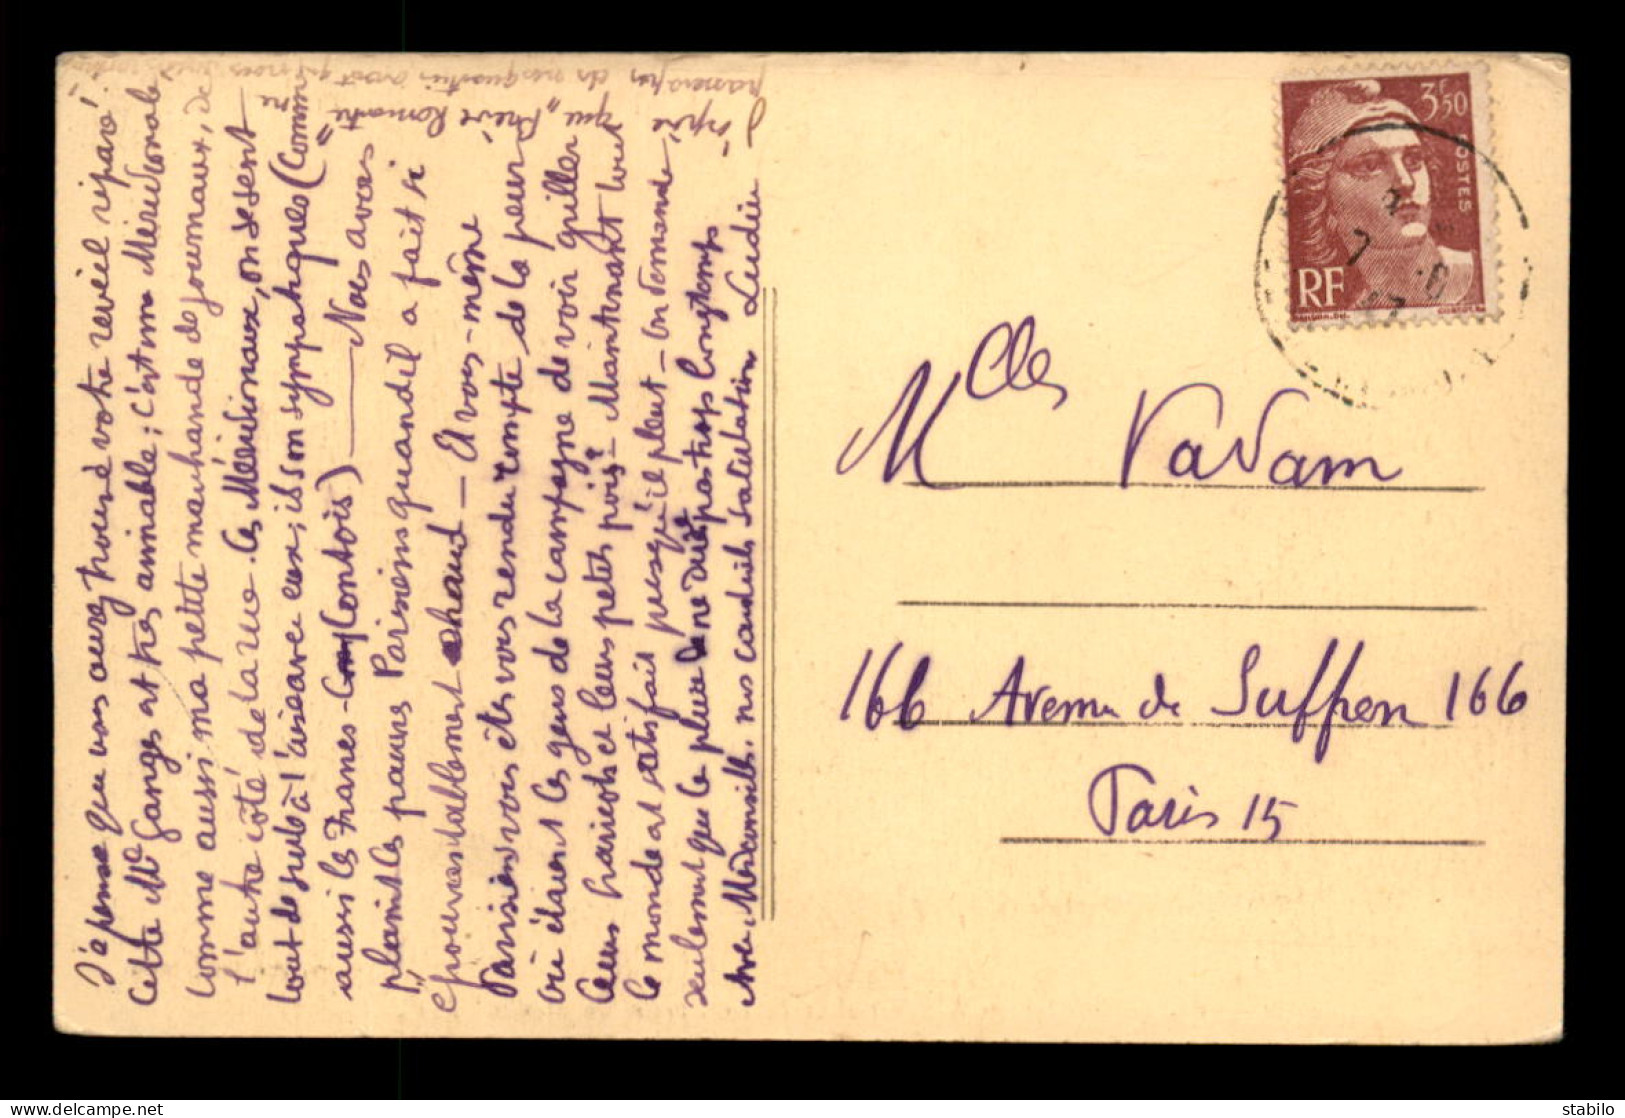 J'ai pensé que vous aurez trouvé votre réveil réparé.
Cette Me Ganges est très aimable ; c'est une Méridionale
comme aussi ma petite marchande de journaux, de
l'autre côté de la rue. Ces Méridionaux, on se sent
tout de suite à l'aise avec eux ; ils son sympathiques (Comme
aussi les Francs-Comtois) — Nous avons
plaint les pauvres Parisiens quand il a fait si
"épouvantablement" chaud — Et vous-même
Parisiens vous êtes vous rendu compte de la peur
où étaient les gens de la campagne de voir griller
leurs haricots et leurs petits pois — Maintenant tout
le monde est satisfait puisqu'il pleut — On demande
seulement que la pluie ne dure pas trop longtemps
Avec nos cordiales salutations Ludie
J'espère que "Pierre Romante"
passera
Mlles Vadam
166 Avenue de Suffren 166
Paris 15
3F50
POSTES
RF
7 -8
47